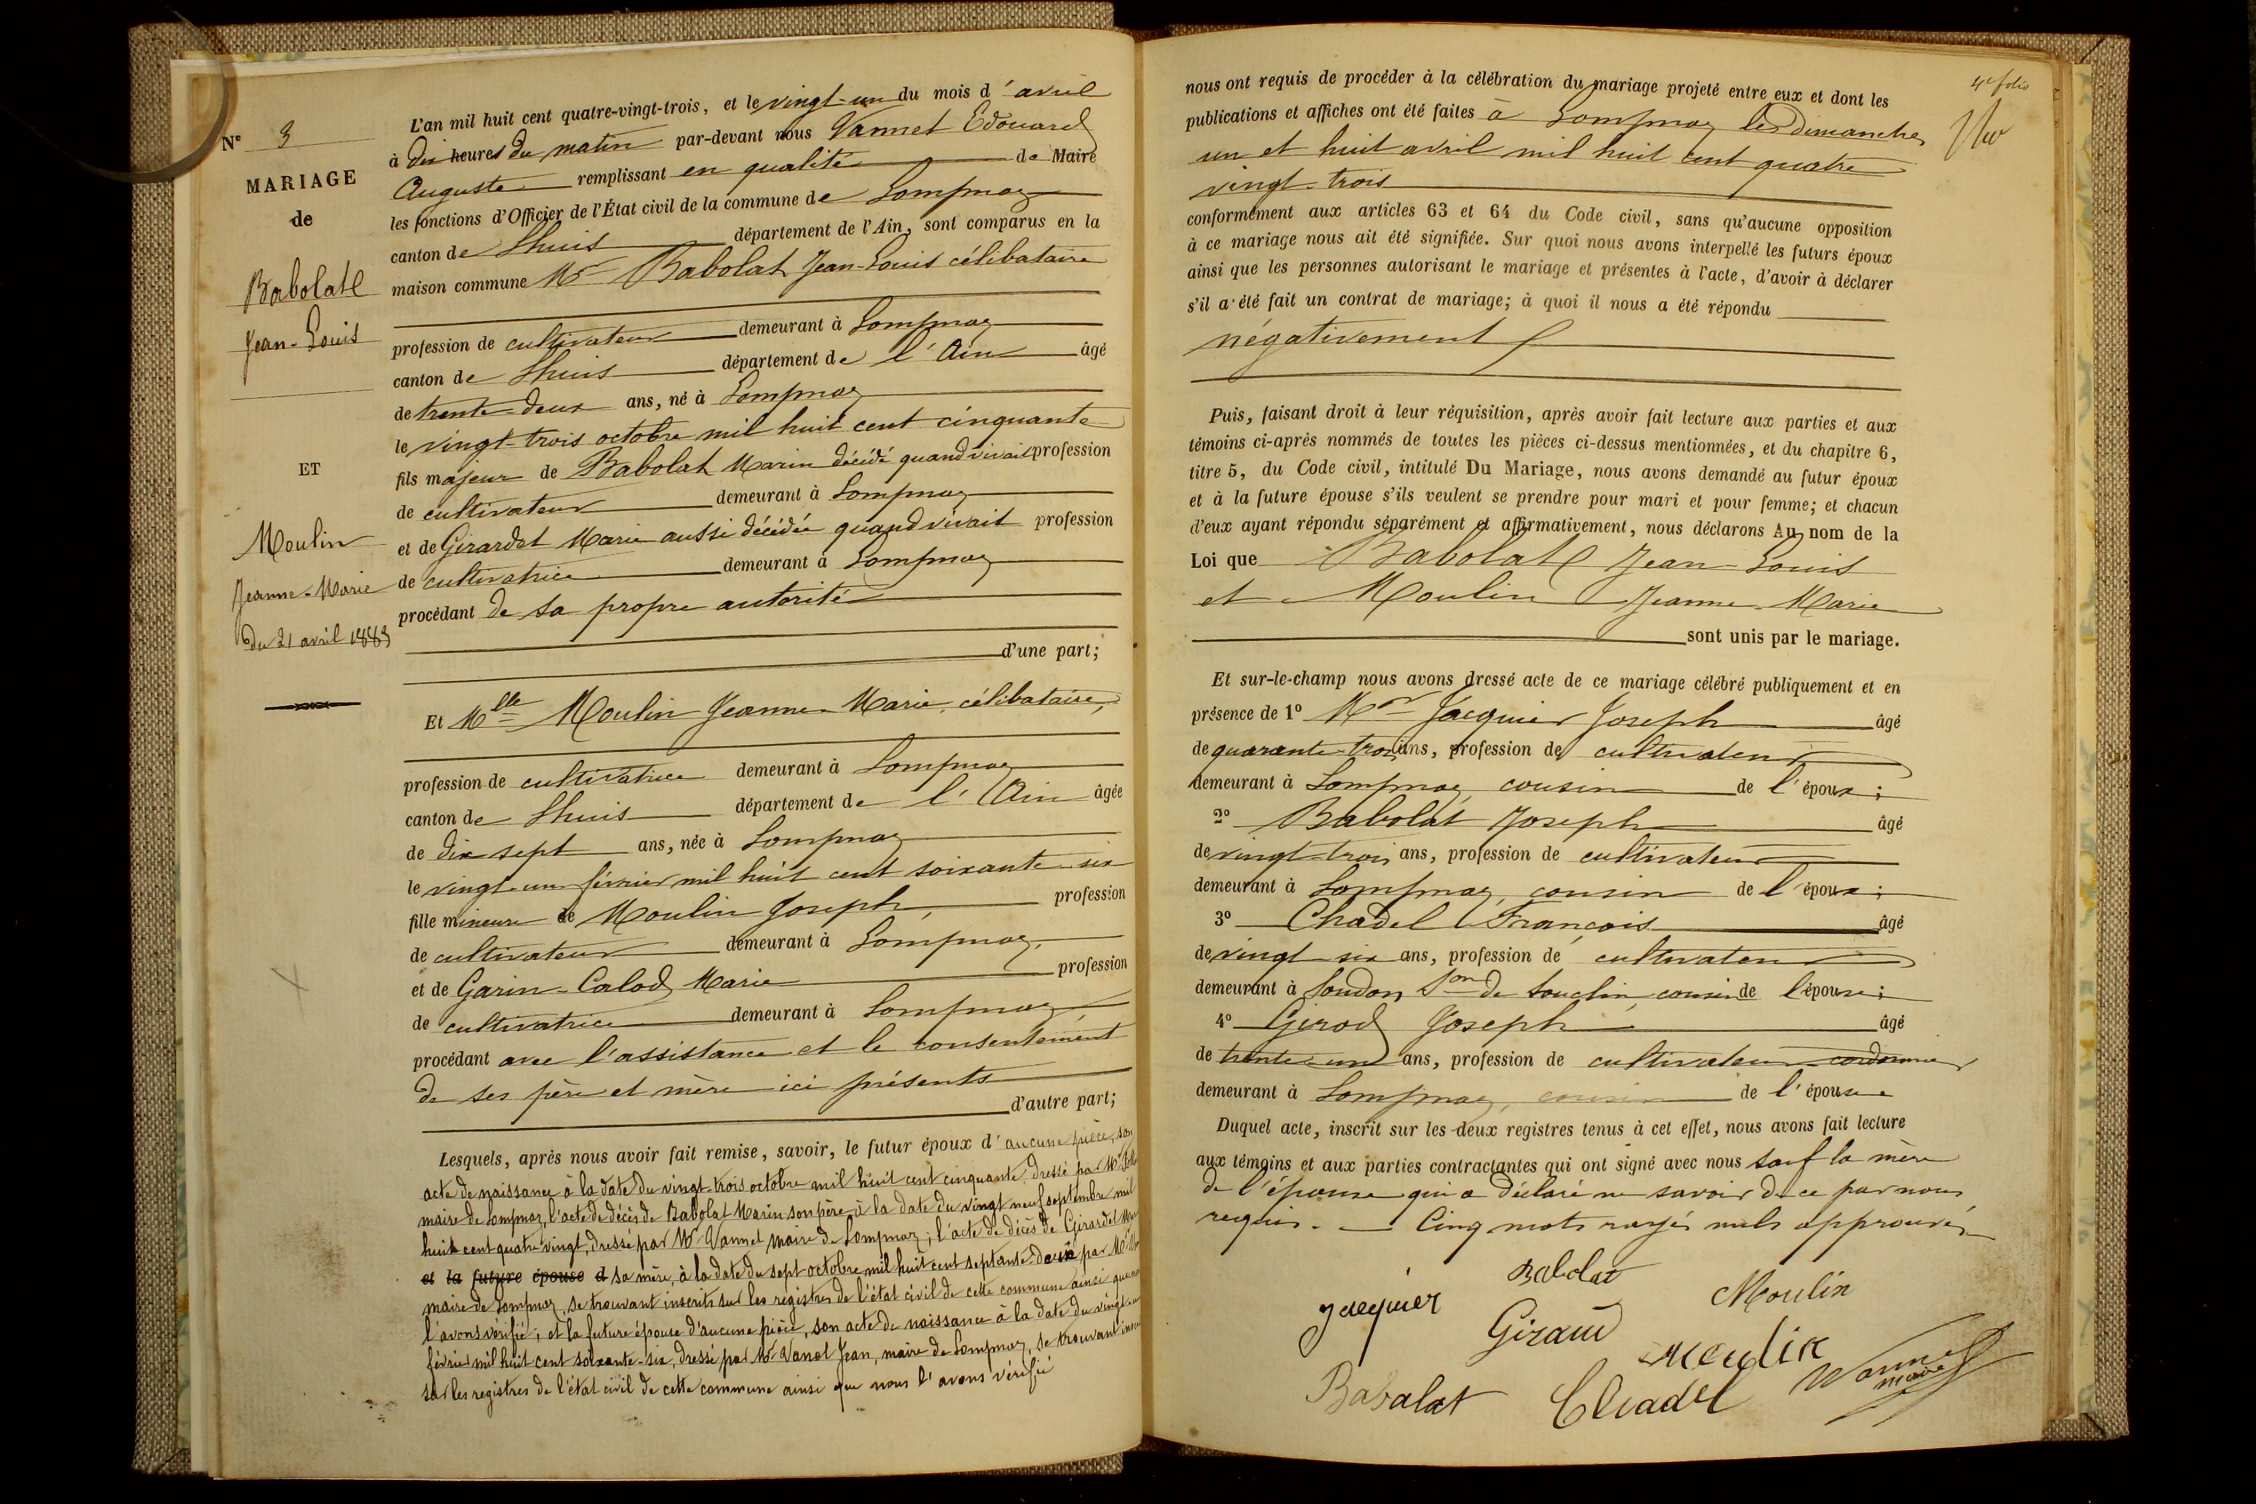 N° 3
MARIAGE
de
Babolat
Jean-Louis
ET
Moulin
Jeanne-Marie
Du 21 avril 1883
L'an mil huit cent quatre-vingt-trois, et le vingt-un du mois d'avril
à dix heures du matin par-devant nous Vannet Edouard
Auguste remplissant en qualité de Maire
les fonctions d'Officier de l'État civil de la commune de Lompnaz
canton de Lhuis département de l'Ain, sont comparus en la
maison commune Mr Babolat Jean-Louis célibataire
profession de cultivateur demeurant à Lompnaz
canton de Lhuis département de l'Ain âgé
de trente-deux ans, né à Lompnaz
le vingt-trois octobre mil huit cent cinquante
fils majeur de Babolat Marin décédé quand vivait profession
de cultivateur demeurant à Lompnaz
et de Girardet Marie aussi décédée quand vivait profession
de cultivatrice demeurant à Lompnaz
procédant de sa propre autorité
d'une part;
Et Mlle Moulin Jeanne-Marie célibataire,
profession de cultivatrice demeurant à Lompnaz
canton de Lhuis département de l'Ain âgée
de dix sept ans, née à Lompnaz
le vingt-un février mil huit cent soixante-six
fille mineure de Moulin Joseph, profession
de cultivateur demeurant à Lompnaz,
et de Garin-Calod Marie profession
de cultivatrice demeurant à Lompnaz,
procédant avec l'assistance et le consentement
de ses père et mère ici présents
d'autre part;
Lesquels, après nous avoir fait remise, savoir, le futur époux d'aucune pièce, son
acte de naissance à la date du vingt-trois octobre mil huit cent cinquante, dressé par Mr
maire de Lompnaz, l'acte de décès de Babolat Marin son père à la date du vingt neuf septembre mil
huit cent quatre vingt, dressé par Mr Vannet maire de Lompnaz; l'acte de décès de Girardet
et la future épouse d sa mère, à la date du sept octobre mil huit cent septante-deux par Mr
maire de Lompnaz, se trouvant inscrits sur les registres de l'état civil de cette commune ainsi que
l'avons vérifié; et la future épouse d'aucune pièce, son acte de naissance à la date du vingt-un
février mil huit cent soixante-six, dressé par Mr Vanet Jean, maire de Lompnaz, se trouvant
sur les registres de l'état civil de cette commune ainsi que nous l'avons vérifié
4e folio
nous ont requis de procéder à la célébration du mariage projeté entre eux et dont les
publications et affiches ont été faites à Lompnaz les dimanches
un et huit avril mil huit cent quatre
vingt-trois
conformément aux articles 63 et 64 du Code civil, sans qu'aucune opposition
à ce mariage nous ait été signifiée. Sur quoi nous avons interpellé les futurs époux
ainsi que les personnes autorisant le mariage et présentes à l'acte, d'avoir à déclarer
s'il a été fait un contrat de mariage; à quoi il nous a été répondu
négativement
Puis, faisant droit à leur réquisition, après avoir fait lecture aux parties et aux
témoins ci-après nommés de toutes les pièces ci-dessus mentionnées, et du chapitre 6,
titre 5, du Code civil, intitulé Du Mariage, nous avons demandé au futur époux
et à la future épouse s'ils veulent se prendre pour mari et pour femme; et chacun
d'eux ayant répondu séparément et affirmativement, nous déclarons Au nom de la
Loi que Babolat Jean-Louis
et Moulin Jeanne-Marie
sont unis par le mariage.
Et sur-le-champ nous avons dressé acte de ce mariage célébré publiquement et en
présence de 1° Mr Jacquier Joseph âgé
de quarante-trois ans, profession de cultivateur
demeurant à Lompnaz, cousin de l'époux;
2° Babolat Joseph âgé
de vingt-trois ans, profession de cultivateur
demeurant à Lompnaz, cousin de l'époux;
3° Chadel François âgé
de vingt six ans, profession de cultivateur
demeurant à Soudon, Son de Souclin, cousin de l'épouse;
4° Girod Joseph âgé
de trente-un ans, profession de cultivateur cordonnier
demeurant à Lompnaz, cousin de l'épouse
Duquel acte, inscrit sur les deux registres tenus à cet effet, nous avons fait lecture
aux témoins et aux parties contractantes qui ont signé avec nous sauf la mère
de l'épouse qui a déclaré ne savoir de ce par nous
requis. Cinq mots rayés nuls approuvés
Babolat
Moulin
Jacquier
Giraud
Moulin
Vannet
maire
Babolat
Chadel